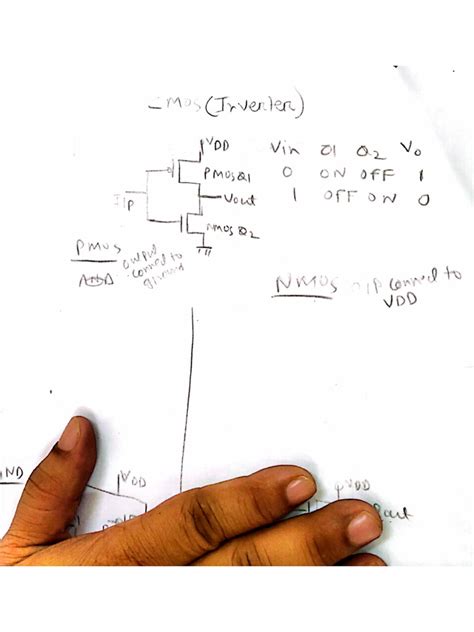 CMOS (Inverter)
VDD
Vin Q1 Q2 Vo
PMOS Q1
0 ON OFF 1
I/P
Vout
1 OFF ON 0
NMOS Q2
PMOS
output
connected to
ground
NMOS O/P connected to
VDD
VDD
VDD